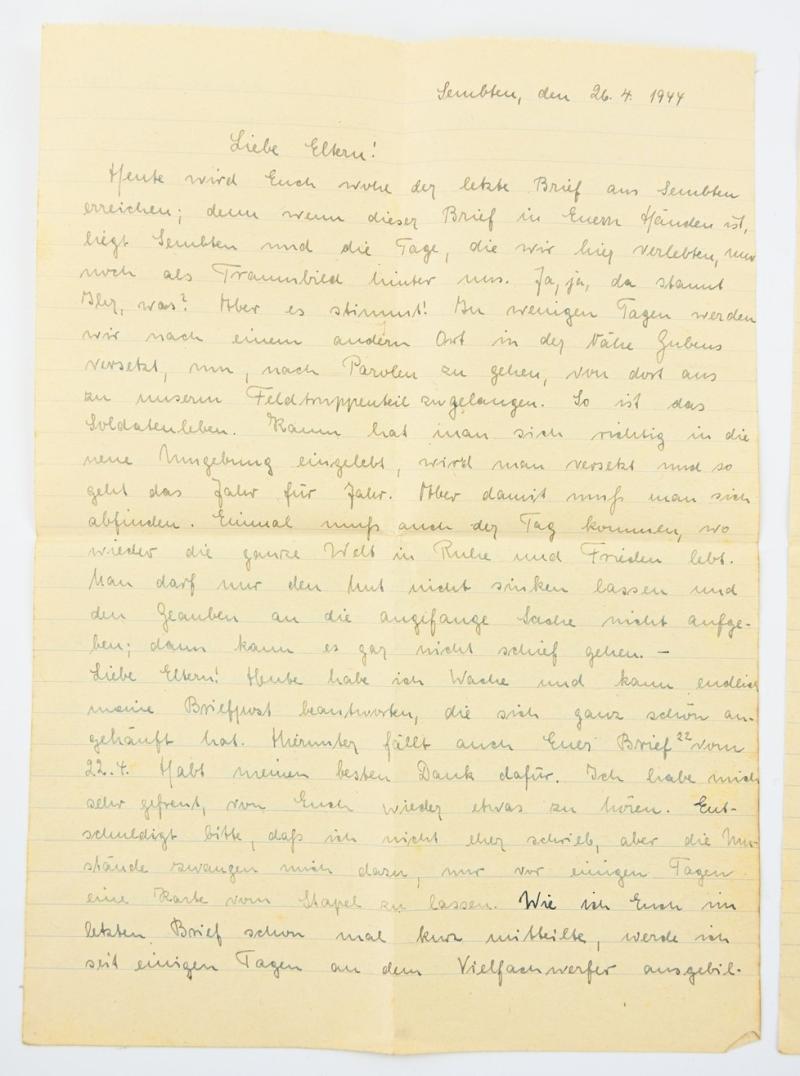 Sembten, den 26. 4. 1944
Liebe Eltern!
Heute wird Euch wohl der letzte Brief aus Sembten
erreichen; denn wenn dieser Brief in Euern Händen ist,
liegt Sembten und die Tage, die wir hier verlebten, nur
noch als Traumbild hinter uns. Ja, ja, da staunt
Ihr, was? Aber es stimmt! In wenigen Tagen werden
wir nach einem andern Ort in der Nähe Gubens
versetzt, um, nach Parolen zu gehen, von dort aus
zu unserm Feldtruppenteil zugelangen. So ist das
Soldatenleben. Kaum hat man sich richtig in die
neue Umgebung eingelebt, wird man versetzt und so
geht das Jahr für Jahr. Aber damit muß man sich
abfinden. Einmal muß auch der Tag kommen, wo
wieder die ganze Welt in Ruhe und Frieden lebt.
Man darf nur den Mut nicht sinken lassen und
den Glauben an die angefange Sache nicht aufge-
ben; dann kann es gar nicht schief gehen. —
Liebe Eltern! Heute habe ich Wache und kann endlich
meine Briefpost beantworten, die sich ganz schön an-
gehäuft hat. Hierunter fällt auch Euer Brief 22 vom
22. 4. Habt meinen besten Dank dafür. Ich habe mich
sehr gefreut, von Euch wieder etwas zu hören. Ent-
schuldigt bitte, daß ich nicht eher schrieb, aber die Um-
stände zwangen mich dazu, nur vor einigen Tagen
eine Karte vom Stapel zu lassen. Wie ich Euch im
letzten Brief schon mal kurz mitteilte, werde ich
seit einigen Tagen an dem Vielfachwerfer ausgebil-